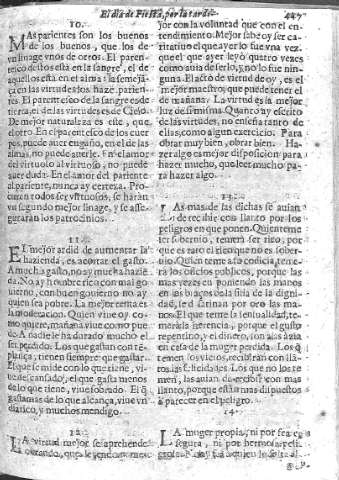 El dia de Fiesta, por la tarde. 447
10.
MAs parientes son los buenos
de los buenos, que los de
vn linage vnos de otros. El paren-
tesco destos està en la sangre, el de
aquellos està en el alma: la semejãça
en las virtudes los haze parien-
tes. El parentesco de la sangre es de
tierra, el de las virtudes es de Cielo.
De mejor naturaleza es este, que
otro. En el parentesco de los cuer-
pos, puede auer engaño, en el de las
almas, no puede auerle. En el amor
del virtuoso al virtuoso, no puede
auer duda. En el amor del pariente
al pariente, nunca ay certeza. Pro-
curen todos ser virtuosos, se haràn
vn segundo mejor linage, y se asse-
guraràn los patrocinios.
11.
EL mejor ardid de aumentar la
hazienda, es acortar el gasto.
A mucha gasto, no ay mucha hazie-
da. No ay hombre rico con mal go-
uierno, con buen gouierno no ay
quien sea pobre. La mejor renta es
la moderacion. Quien viue oy, co-
mo quiere, mañana viue como pue-
de. A nadie le ha durado mucho el
ser perdido. Los que gastan con te-
plança, tienen siempre que gastar.
El que se mide con lo que tiene, vi-
ue descansado, el que gasta menos
de lo que tiene, viue sobrado. El q̃
gasta mas de lo que alcança, viue vn
diatico, y muchos mendigo.
12.
LA virtud mejor se aprehende
obrando, que leyendo, mas
jor con la voluntad que con el en-
tendimiento. Mejor sabe oy ser ca-
ritatiuo el que ayer lo fue vna vez,
que el que ayer leyò quatro vezes
como auia de serlo, y no lo fue nin-
guna. El acto de virtud de oy, es el
mejor maestro, que puede tener el
de mañana. La virtud es la mejor
luz de si misma. Quanto ay escrito
de las virtudes, no enseña tanto de
ellas, como algun exercicio. Para
obrar muy bien, obrar bien. Ha-
zer algo es mejor disposicion para
hazer mucho, que leer mucho pa-
ra hazer algo.
13.
LAs mas de las dichas se auian
de recibir con llanto por los
peligros en que ponen. Quien teme
ser soberuio, temerà ser rico, por
que es raro el rico que no es sober-
uio. Quien teme a la codicia, teme-
rà los oficios publicos, porque las
mas vezes en poniendo las manos
en los braços de la silla de la digni-
dad, se destiñan por oro las ma-
nos. El que teme la sensualidad, te-
merà la herencia, porque el gusto
repentino, y el dinero, son alsa auiã
en casa de la muger perdida. Los q̃
temen los vicios, recibiràn con llã-
tos las felicidades. Los que no los te
men, las auian de recibir con mas
llanto, porque estàn mas dispuestos
a parecer en el peligro.
14.
LA muger propia, ni por fea es
segura, ni por hermosa peli-